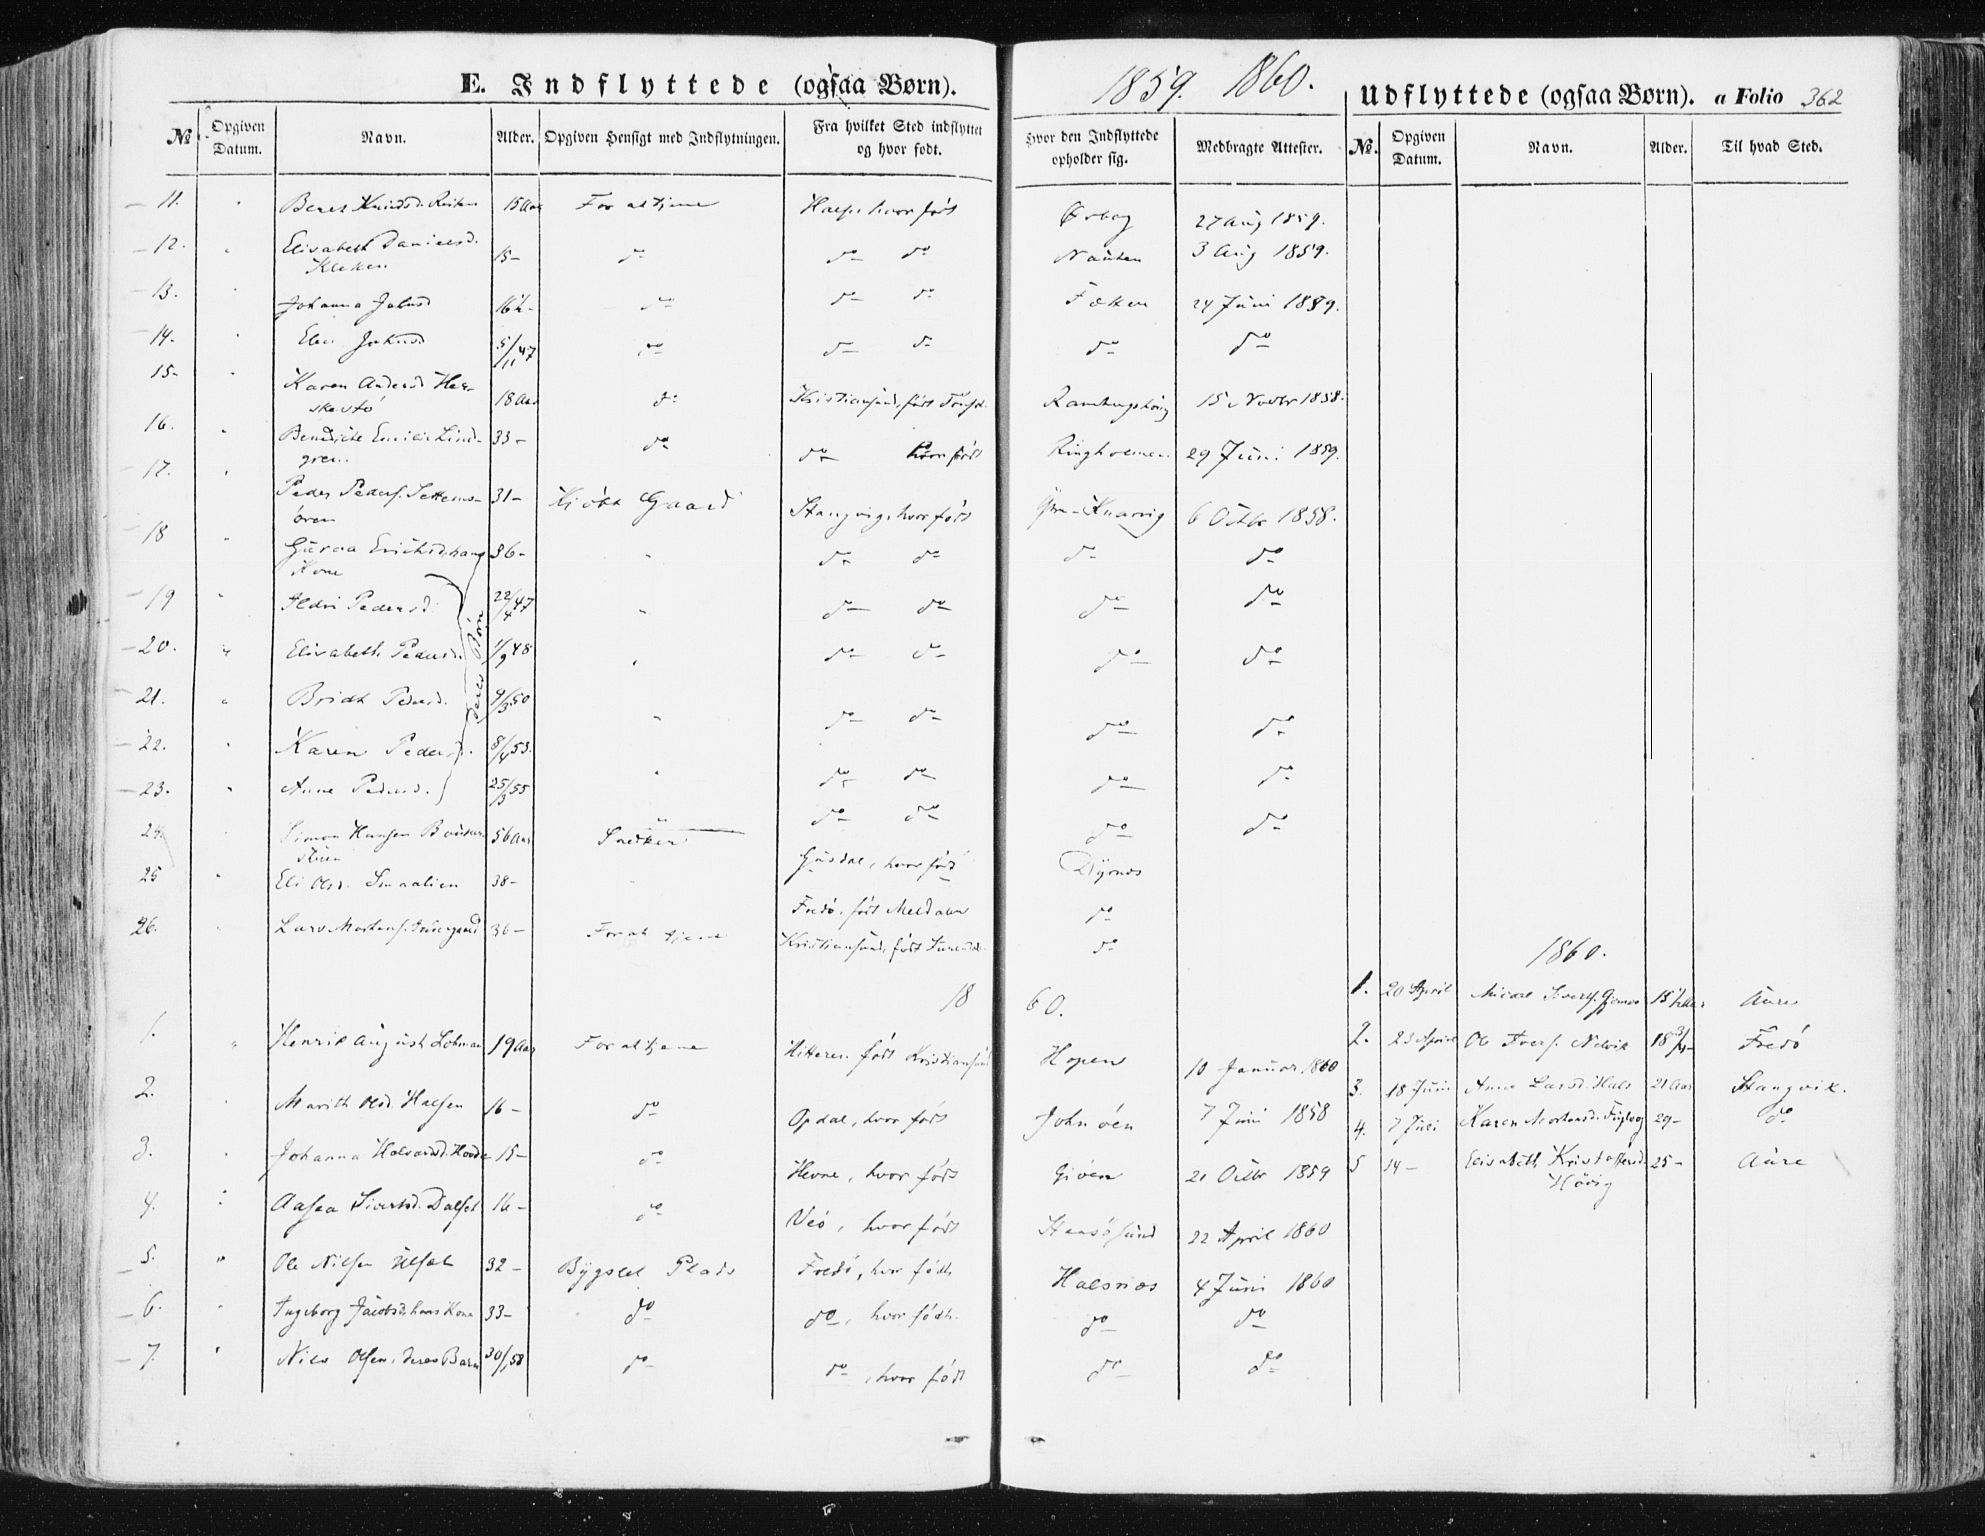 E. Indflyttede (ogsaa Børn).
1859. 1860.
Udflyttede (ogsaa Børn). a Folio 362
№ Opgiven Datum. Navn. Alder. Opgiven Hensigt med Indflytningen. Fra hvilket Sted indflyttet og hvor født. Hvor den Indflyttede opholder sig. Medbragte Attester. №. Opgiven Datum. Navn. Alder. Til hvad Sted.
11. " 15 Aar For at tjene hvor født 27 Aug 1859.
12. " Elisabeth Danielsd. 15 - do do do 3 Aug 1859.
13. " Johanna Johnsd 16½ - do do do 24 Juni 1859.
14. " Johnsd 5/11 47 do do do do do
15. " Karen Andersd 18 Aar do Kristiansund, født 15 Novbr 1858.
16. " Benedicte Lind-
gren. 33 - do do hvor født Ringholmen. 29 Juni 1859.
17. " Peder Peders.
øren 31 - Kjøbt Gaard Stangvig, hvor født 6 Octbr 1858.
18 " Guroa Erichsd, hans
Kone 36 - " do do do do
19 " Ildri Pedersd. 22/4 47 " do do do do
20. " Elisabeth Pedersd. 1/9 48 " do do do do
deres Børn
21. " Bridt Pedersd. 9/3 50 " do do do do
22. " Karen Pedersd. 8/4 53. " do do do do
23. " Anne Pedersd. 25/3 55 " do do do do
24. " Simon Hansen 56 Aar Snedker hvor født Dyrnes
25 " Eli Olsd. Smaalien 38 - " Fredø, født Meldalen do
26. " Lars Mortens. 36 - For at tjene Kristiansund, født do
1860.
1860.
1. " Henrik August Lohman 19 Aar For at tjene Hitteren født Kristiansund Hopen 10 Januar 1860
2. " Marith Olsd. Halsen 16 - do Opdal, hvor født Johnøen 7 Juni 1858
3. " Johanna Halvorsd. Hovde 15 - do Hevne, hvor født Giøen 21 Octbr 1859
4. " Aasea Sivertsd. Dalset 16 - do Veø, hvor født 22 April 1860
5. " Ole Nilsen Ulset 32 - Bygslet Plads Fredø, hvor født Halsnæs 4 Juni 1860
6. " Ingeborg Jacobsd. hans Kone 33 - do do, hvor født. do do
7. " Nils Olsen, deres Barn 30/1 58 do do, hvor født do do
1. 20 April Sivers. 15½ Aar Aure
2. 23 April Ole Ivers. Nelvik 18 Fredø
3. 18 Juni Anne Larsd. Hals 21 Aar Stangvik.
4. 7 Juli Karen Mortensd. Fuglvog 29 - do
5 14 - Elisabeth Kristoffersd.
Høvig 25 - Aure